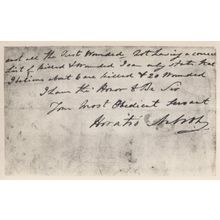 and all the rest Wounded. Not having a correct
list of killed & wounded I can only state that
I believe about 6 are killed & 20 Wounded
I have the Honor to Be Sir
Your Most Obedient Servant
Horatio Nelson